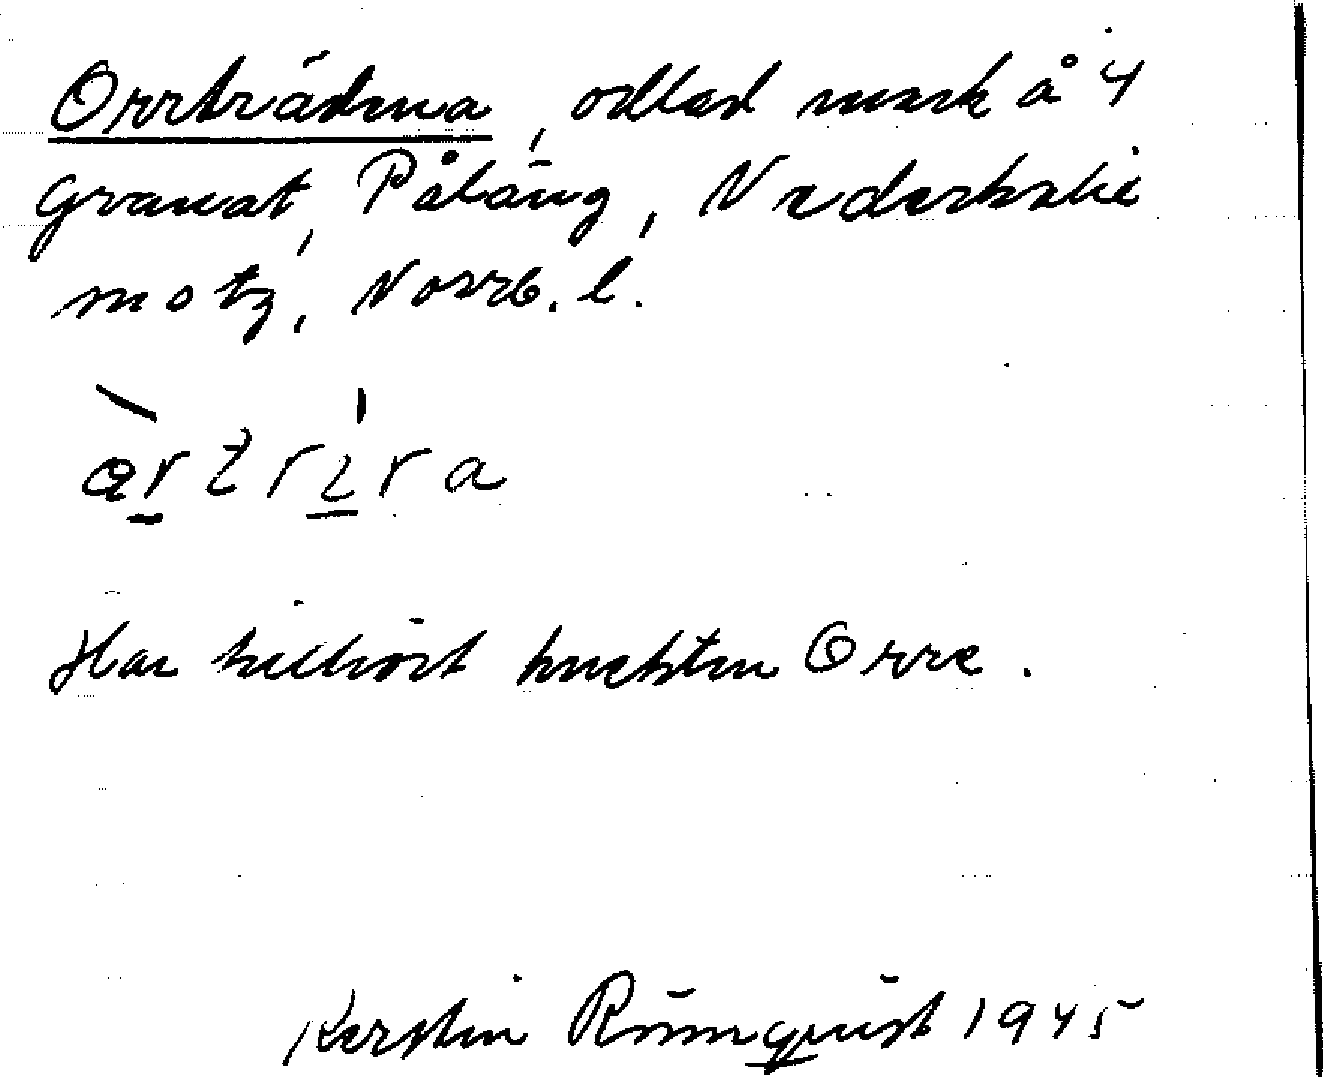 Orrträdena, odlad mark å 4
Granat, Påläng, Nederkalix
motz, Norrb. l.
Har tillhört knekten Orre.
Kerstin Rönnquist 1945